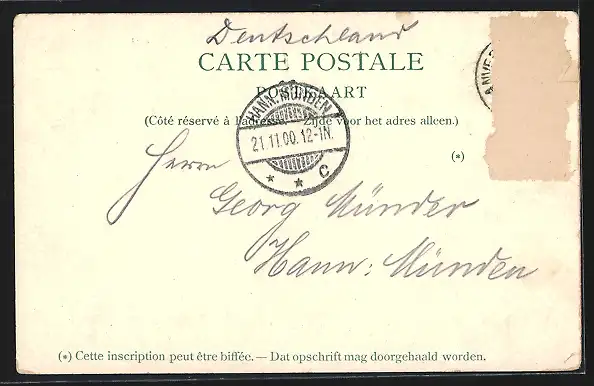 Deutschland
CARTE POSTALE
POSTKAART
(Côté réservé à l'adresse. — Zijde voor het adres alleen.)
HANN. MÜNDEN
21.11.00.12-1N.
* * C
ANVE
(*)
Herrn
Georg Münder
Hann: Münden
(*) Cette inscription peut être biffée. — Dat opschrift mag doorgehaald worden.